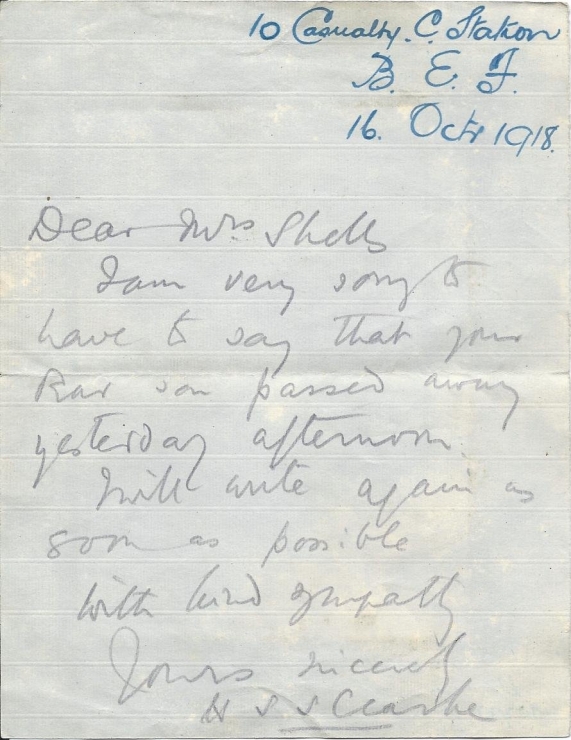 10 Casualty. C. Station
B. E. F.
16. Octr 1918.
Dear Mrs
I am very sorry to
have to say that your
Dear son passed away
yesterday afternoon.
I will write again as
soon as possible
With kind sympathy
Yours sincerely
H S S Clarke